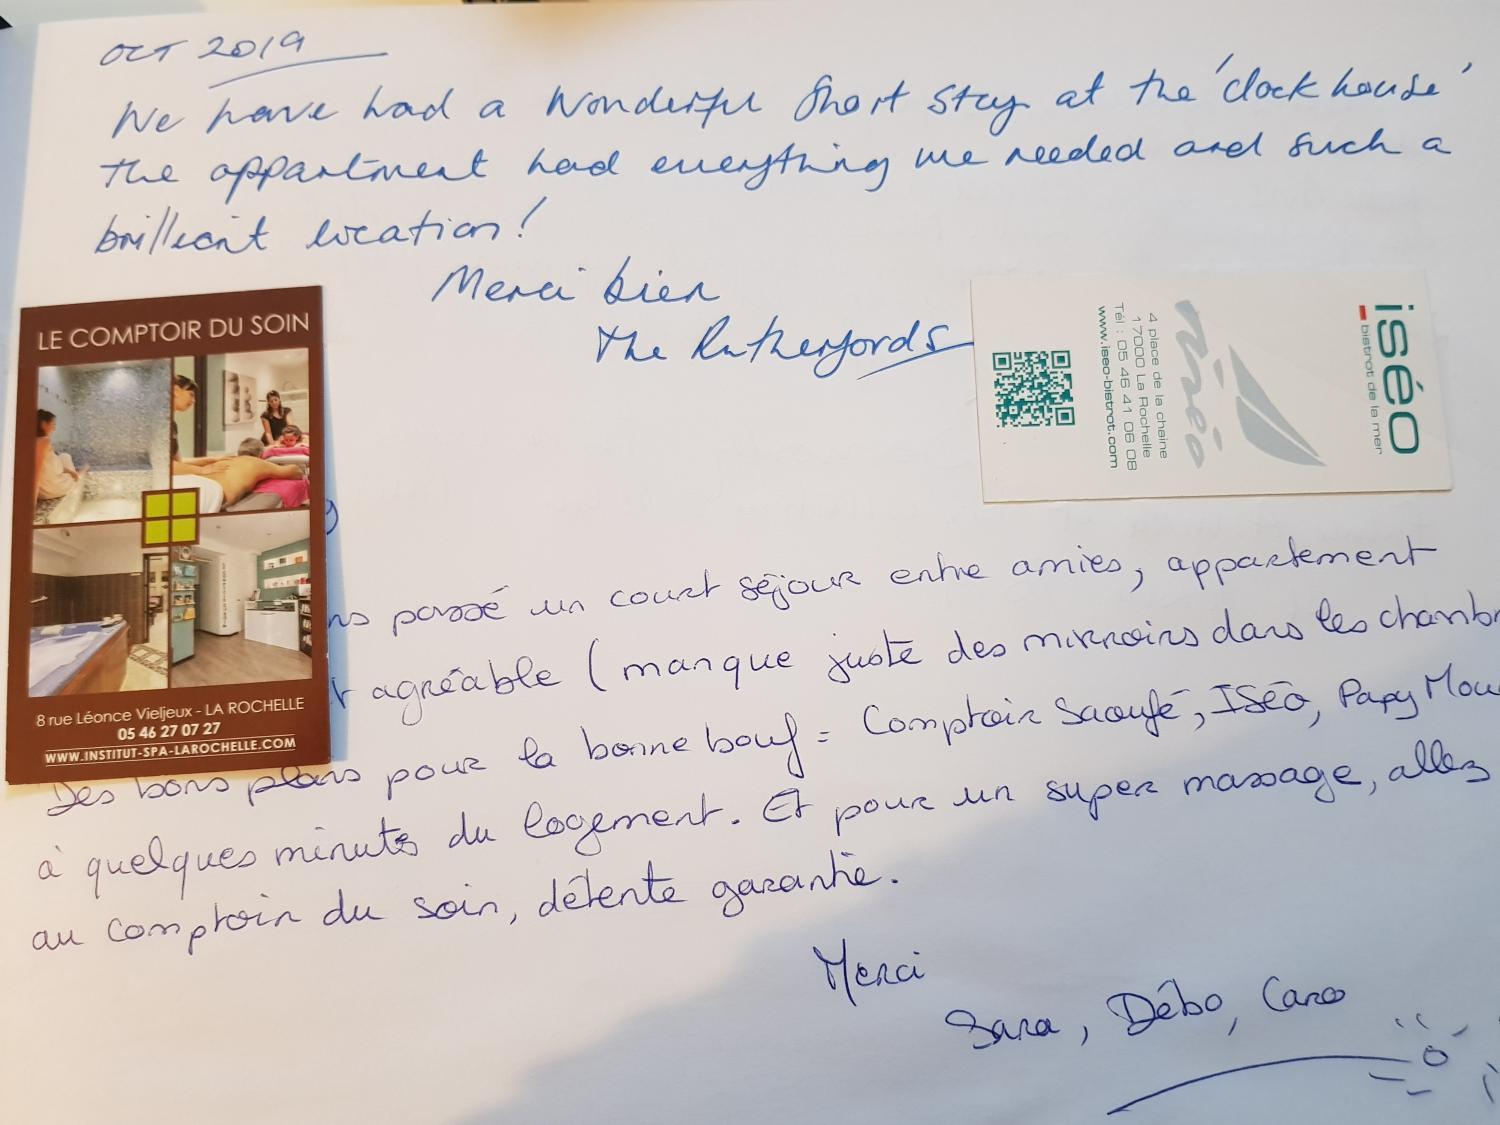 OCT 2019
We have had a wonderful short stay at the 'clock house'
the appartment had everything we needed and such a
brilliant location!
Merci bien
The Rutherfords
LE COMPTOIR DU SOIN
8 rue Léonce Vieljeux - LA ROCHELLE
05 46 27 07 27
WWW.INSTITUT-SPA-LAROCHELLE.COM
iséo
bistrot de la mer
iséo
4 place de la chaine
17000 La Rochelle
Tél : 05 46 41 06 08
www.iseo-bistrot.com
ns passé un court séjour entre amies, appartement
agréable (manque juste des mirroirs dans les chambr
Des bons plans pour la bonne bouf = Comptoir Saoufé, ISéO, Papy Mou
à quelques minutes du logement. Et pour un super massage, allez
au comptoir du soin, détente garantie.
Merci
Sara, Débo, Caro